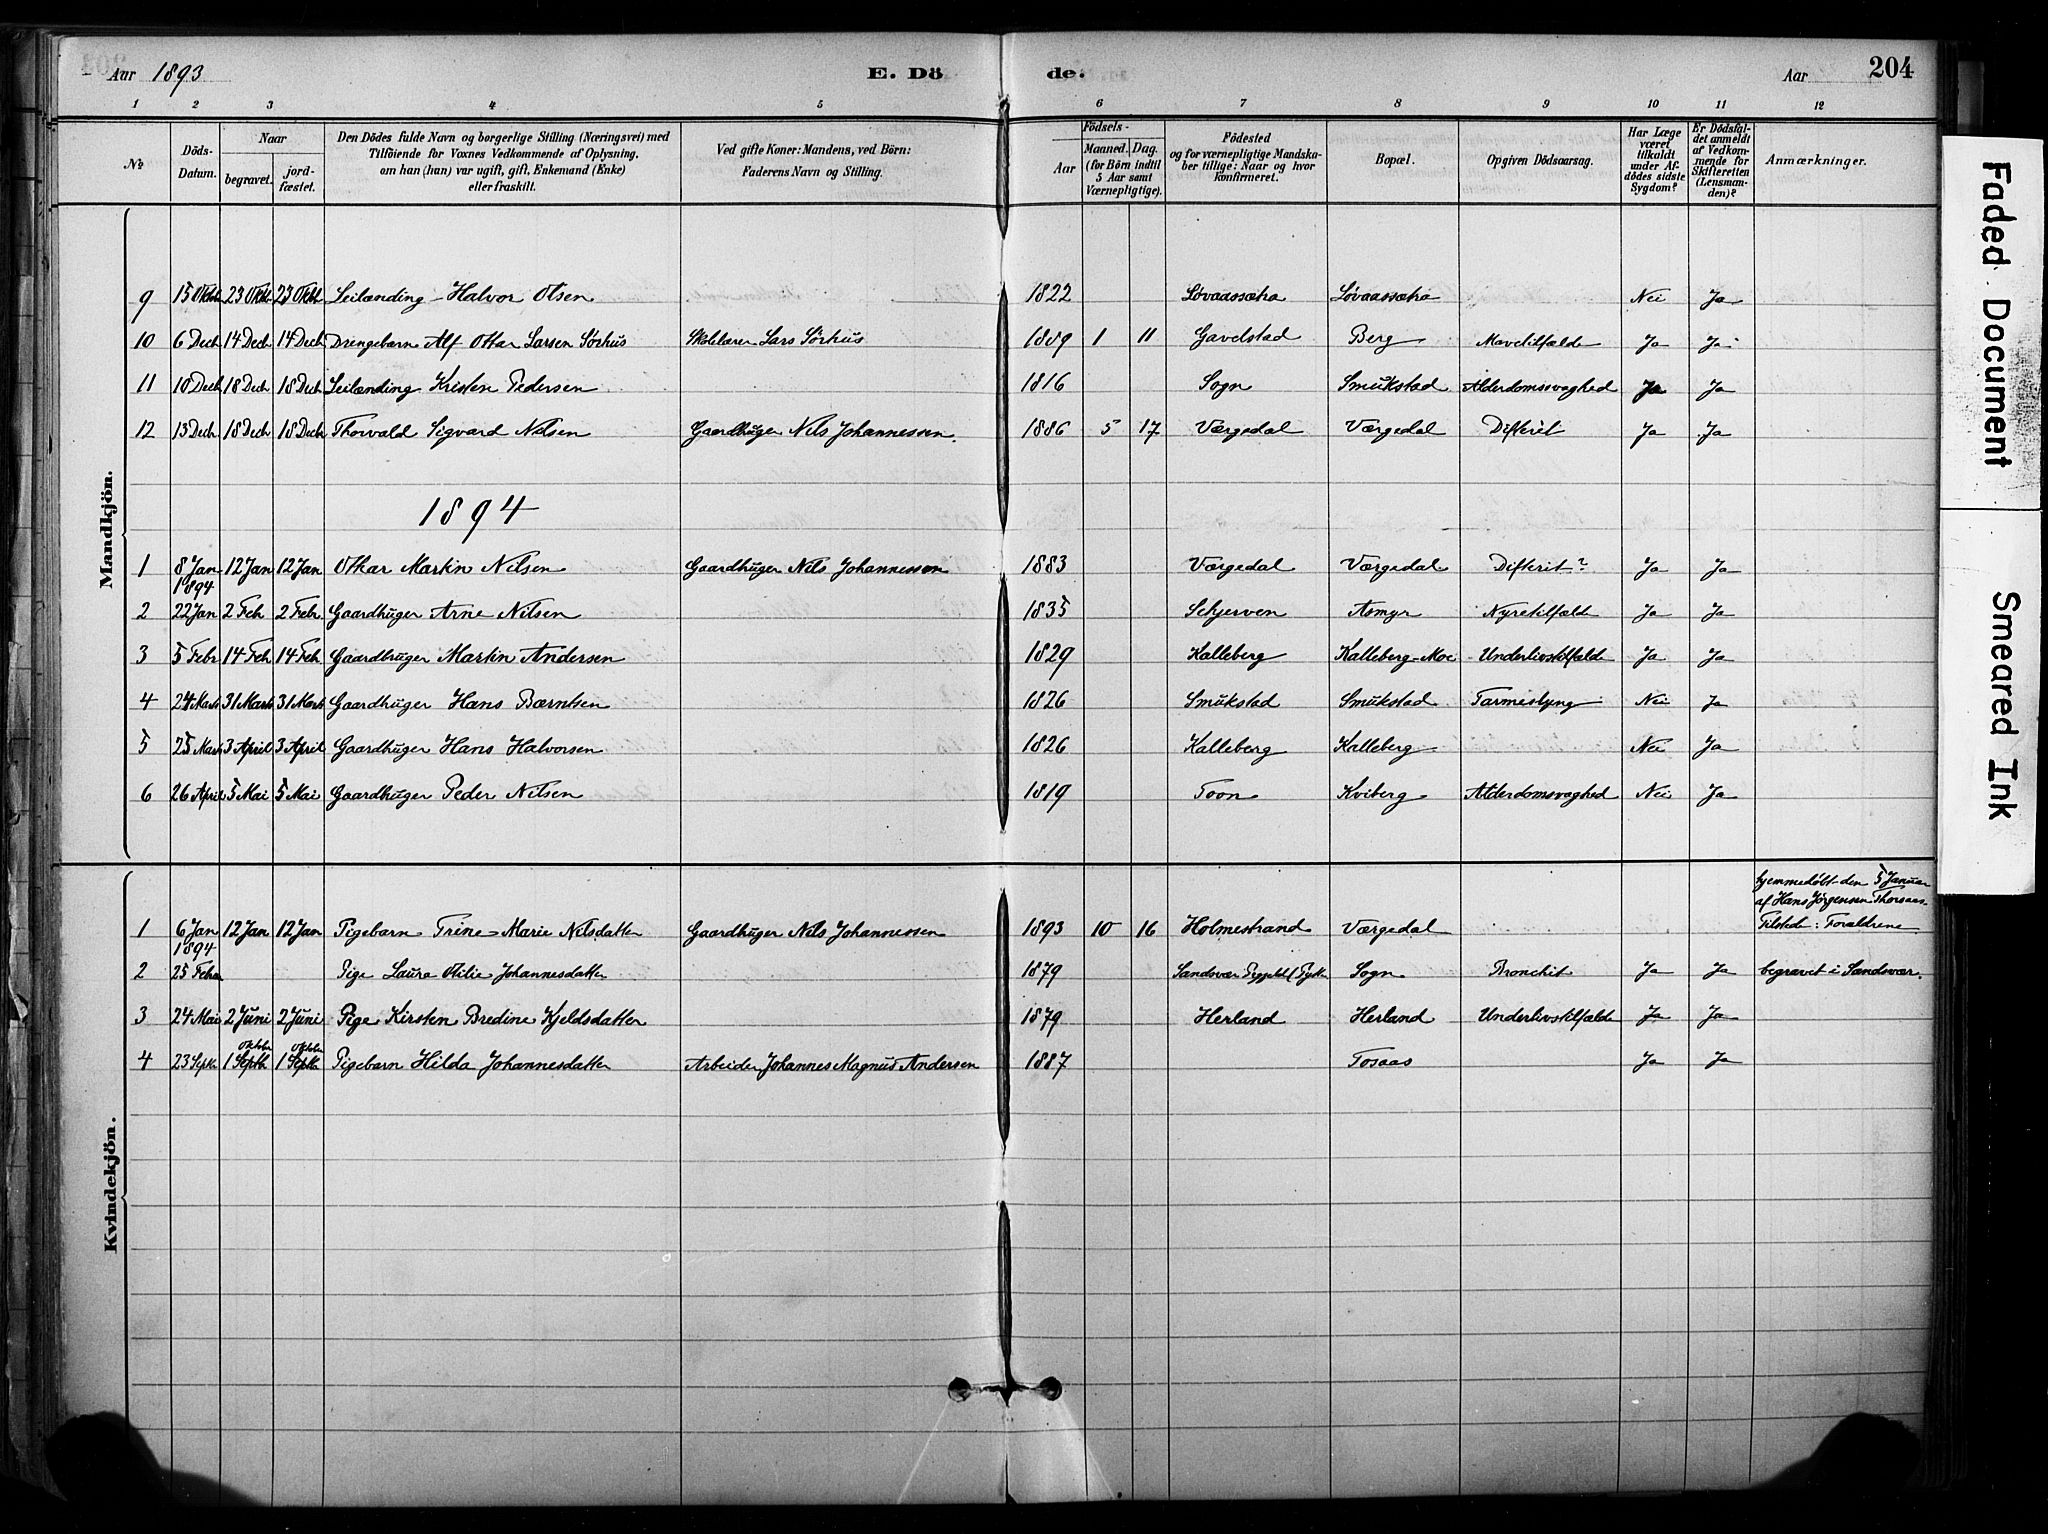 Aar 1893 E. Dö de. Aar 204
1 2 3 4 5 6 7 8 9 10 11 12
№ Döds-Datum. Naar begravet. jordfæstet. Den Dödes fulde Navn og borgerlige Stilling (Næringsvei) med Tilföiende for Voxnes Vedkommende af Oplysning, om han (hun) var ugift, gift, Enkemand (Enke) eller fraskilt. Ved gifte Koner: Mandens, ved Börn: Faderens Navn og Stilling. Födsels- Aar Maaned. Dag. (for Börn indtil 5 Aar samt Værnepligtige). Födested og for værnepligtige Mandskaber tillige: Naar og hvor konfirmeret. Bopæl. Opgiven Dödsaarsag. Har Læge været tilkaldt under Afdödes sidste Sygdom? Er Dödsfaldet anmeldt af Vedkommende for Skifteretten (Lensmanden)? Anmærkninger.
Mandkjön.
9 15 Oktbr 23 Oktbr 23 Oktbr Leilænding Halvor Olsen 1822 Løvaassætra Løvaassætra Nei Ja
10 6 Decb 14 Decb 14 Decb Drengebarn Alf Ottar Larsen Sörhus Skolelærer Lars Sörhus 1889 1 11 Gavelstad Berg Mavetilfælde Ja Ja
11 10 Decb 18 Decb 18 Decb Leilænding Kristen Pedersen 1816 Sogn Smukstad Alderdomssvaghed Ja Ja
12 13 Decb 18 Decb 18 Decb Thorvald Sigvard Nilsen Gaardbruger Nils Johannessen. 1886 5 17 Værgedal Værgedal Difterit Ja Ja
1894
1 8 Jan 1894 12 Jan 12 Jan Othar Martin Nilsen Gaardbruger Nils Johannessen 1883 Værgedal Værgedal Difterit? Ja Ja
2 22 Jan 2 Feb 2 Febr Gaardbruger Arne Nilsen 1835 Schjerven Asmyr Nyretilfælde Ja Ja
3 5 Febr 14 Feb 14 Feb Gaardbruger Martin Andersen 1829 Kalleberg Kalleberg-Moe Underlivstilfælde Ja Ja
4 24 Marts 31 Marts 31 Marts Gaardbruger Hans Bærntsen 1826 Smukstad Smukstad Tarmeslyng Nei Ja
5 25 Marts 3 April 3 April Gaardbruger Hans Halvorsen 1826 Kalleberg Kalleberg Nei Ja
6 26 April 5 Mai 5 Mai Gaardbruger Peder Nilsen 1819 Toon Kviberg Alderdomsvaghed Nei Ja
Kvindekjön.
hjemmedøbt den 5 Januar
af Hans Jörgensen Thorsaas
1 6 Jan 1894 12 Jan 12 Jan Pigebarn Trine Marie Nilsdatter Gaardbruger Nils Johannessen 1893 10 16 Holmestrand Værgedal Tilstede: Forældrene
2 25 Febru Pige Laura Otilie Johannesdatter 1879 Sandsvær Sogn Bronchit Ja Ja begravet i Sandsvær.
3 24 Mai 2 Juni 2 Juni Pige Kirsten Bredine Kjeldsdatter 1879 Herland Herland Underlivstilfælde Ja Ja
4 23 Septbr 1 Septbr Oktober 1 Septbr Oktober Pigebarn Hilda Johannesdatter Arbeider Johannes Magnus Andersen 1887 Tosaas Ja Ja
Faded Document
Smeared Ink